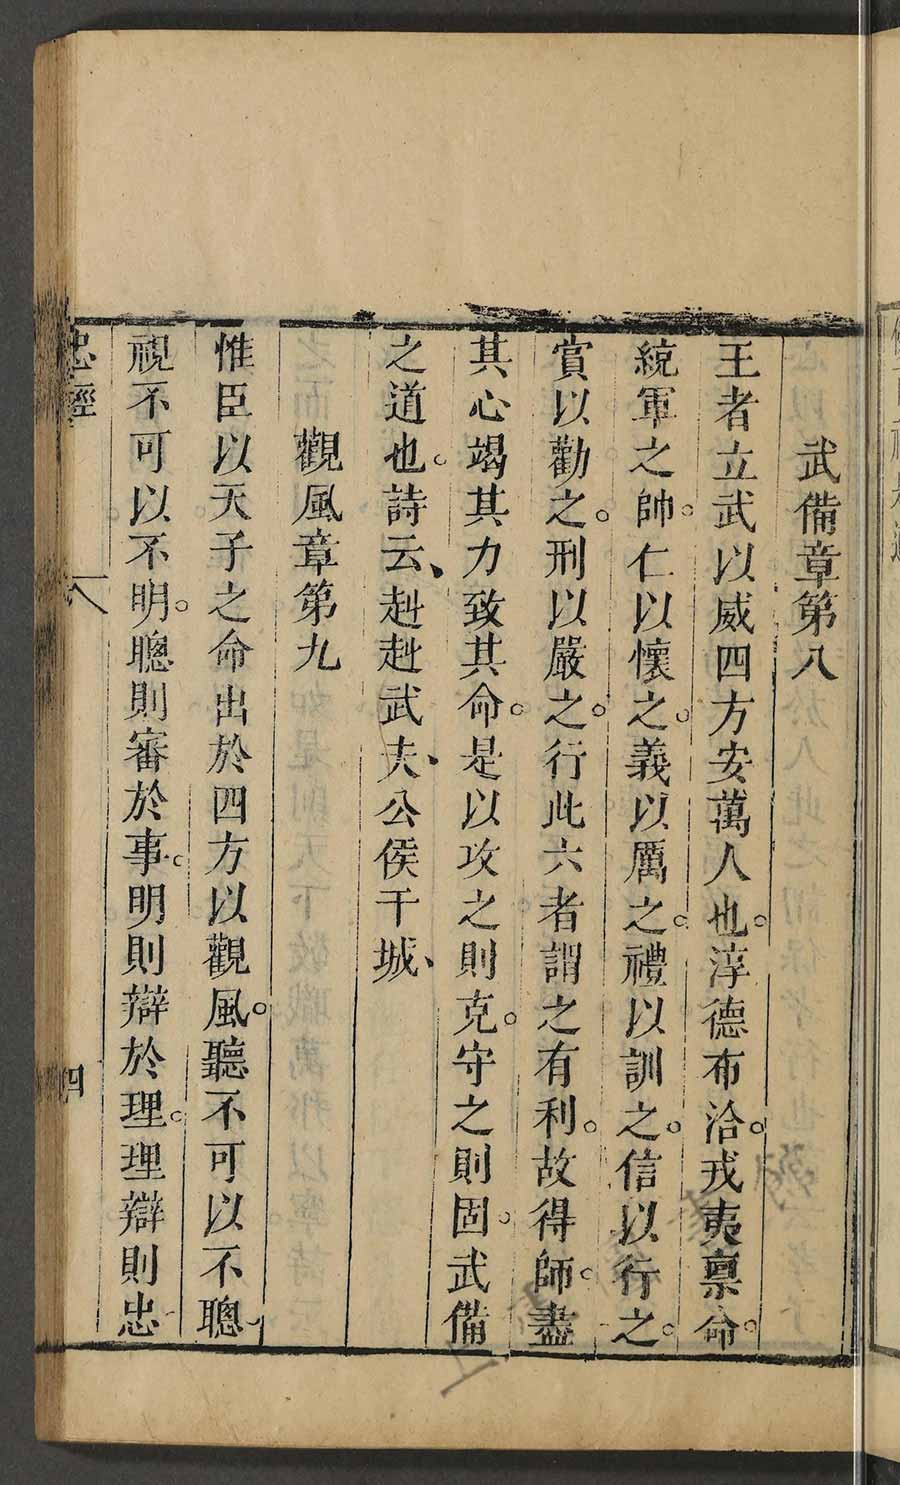 武備章第八
王者立武以威四方安萬人也。淳德布洽。戎夷禀命。
統軍之帥。仁以懷之。義以厲之。禮以訓之。信以行之。
賞以勸之。刑以嚴之。行此六者謂之有利。故得師。盡
其心竭其力致其命。是以攻之則克。守之則固。武備
之道也。詩云、赳赳武夫、公侯干城、
觀風章第九
惟臣以天子之命出於四方以觀風。聽不可以不聰、
視不可以不明。聰則審於事。明則辯於理。理辯則忠、
忠經
八
四